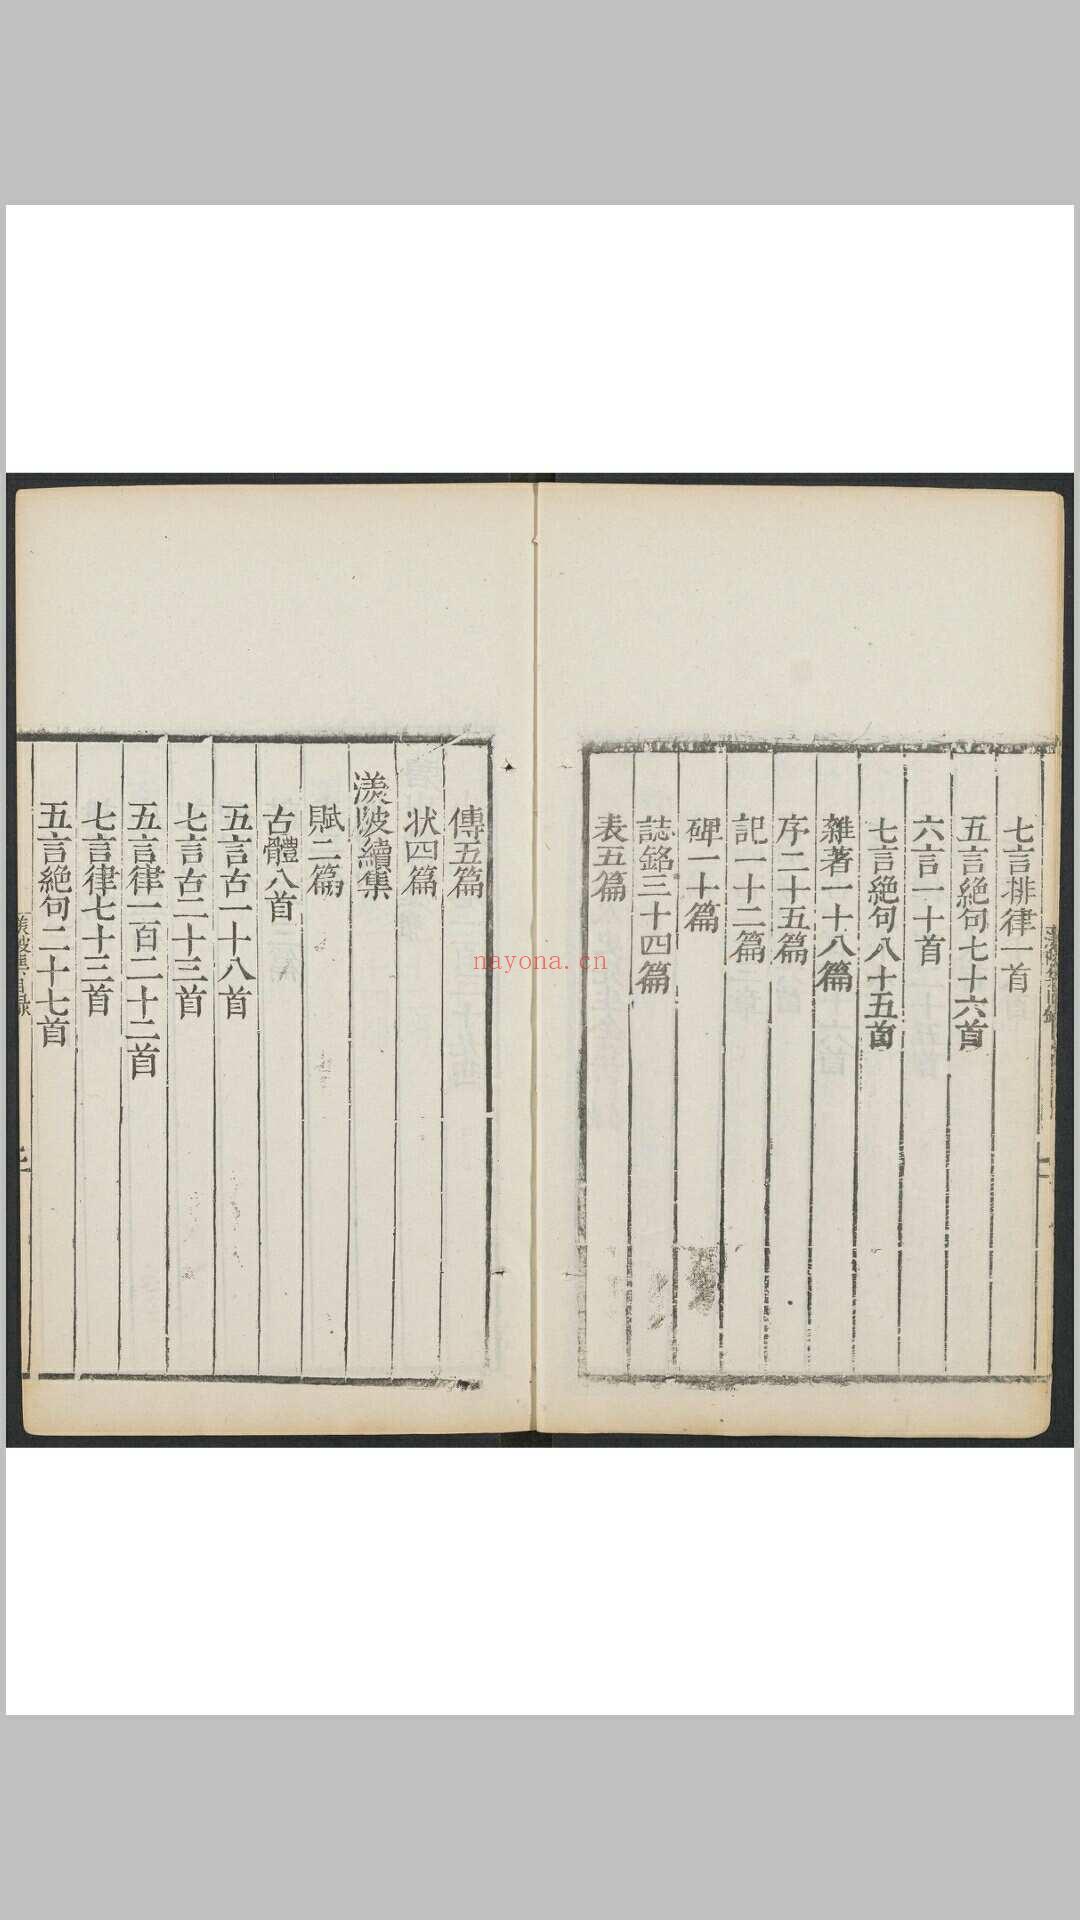 七言排律一首
五言絶句七十六首
六言一十首
七言絶句八十五首
雜著一十八篇
序二十五篇
記一十二篇
碑一十篇
誌銘三十四篇
表五篇
傳五篇
状四篇
渼陂續集
賦二篇
古體八首
五言古一十八首
七言古二十三首
五言律一百二十二首
七言律七十三首
五言絶句二十七首
nayona.cn